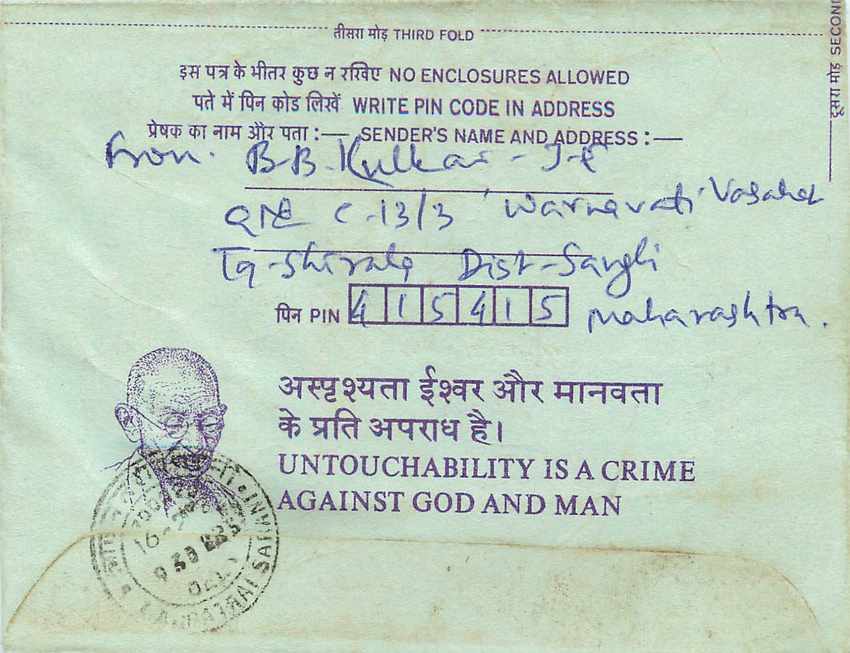 तीसरा मोड़ THIRD FOLD
दूसरा मोड़ SECOND
इस पत्र के भीतर कुछ न रखिए NO ENCLOSURES ALLOWED
पते में पिन कोड लिखें WRITE PIN CODE IN ADDRESS
प्रेषक का नाम और पता :— SENDER'S NAME AND ADDRESS :—
From. B-B-Kulkar
C-13/3 'Warnavati' Vasahat
Tq-Shirala Dist-Sangli
पिन PIN 415415 Maharashtra.
अस्पृश्यता ईश्वर और मानवता
के प्रति अपराध है।
UNTOUCHABILITY IS A CRIME
AGAINST GOD AND MAN